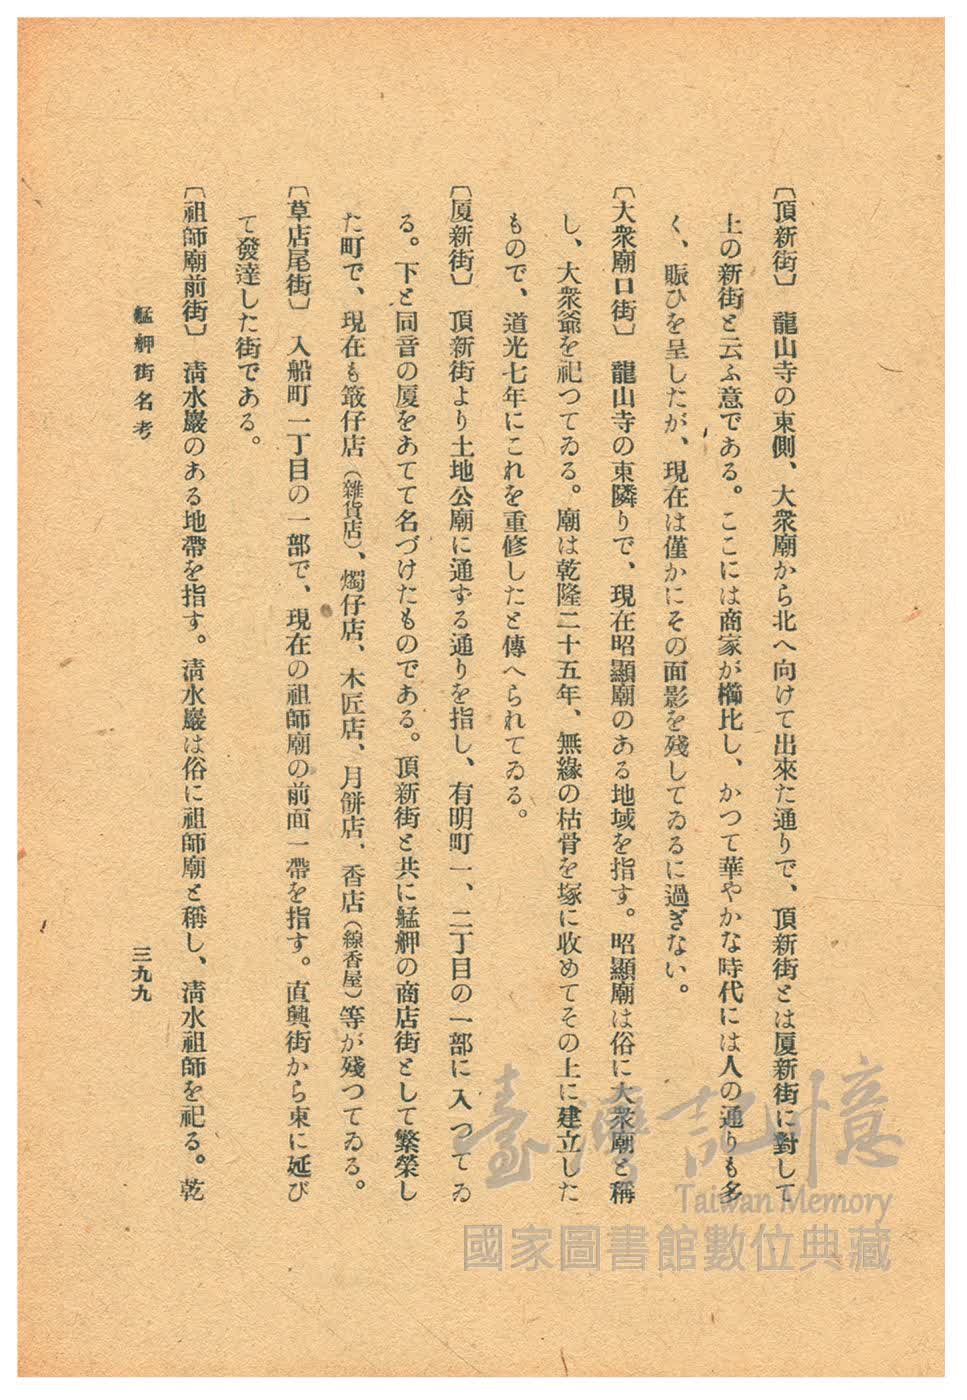 〔頂新街〕　龍山寺の東側、大衆廟から北へ向けて出來た通りで、頂新街とは厦新街に對して
上の新街と云ふ意である。ここには商家が櫛比し、かつて華やかな時代には人の通りも多
く、賑ひを呈したが、現在は僅かにその面影を殘してゐるに過ぎない。
〔大衆廟口街〕　龍山寺の東隣りで、現在昭顯廟のある地域を指す。昭顯廟は俗に大衆廟と稱
し、大衆爺を祀つてゐる。廟は乾隆二十五年、無緣の枯骨を塚に收めてその上に建立した
もので、道光七年にこれを重修したと傳へられてゐる。
〔厦新街〕　頂新街より土地公廟に通ずる通りを指し、有明町一、二丁目の一部に入つてゐ
る。下と同音の厦をあてて名づけたものである。頂新街と共に艋舺の商店街として繁榮し
た町で、現在も簸仔店（雜貨店）、燭仔店、木匠店、月餅店、香店（線香屋）等が殘つてゐる。
〔草店尾街〕　入船町一丁目の一部で、現在の祖師廟の前面一帶を指す。直興街から東に延び
て發達した街である。
〔祖師廟前街〕　淸水巖のある地帶を指す。淸水巖は俗に祖師廟と稱し、淸水祖師を祀る。乾
艋舺街名考
三九九
臺灣記憶
Taiwan Memory
國家圖書館數位典藏